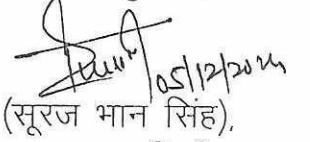 05/12/2024
(सूरज भान सिंह),